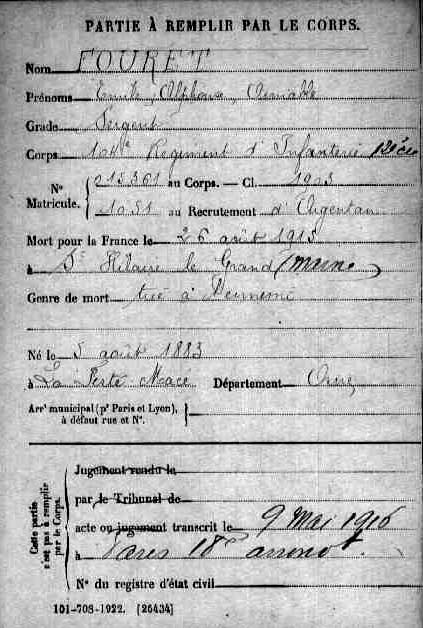 PARTIE À REMPLIR PAR LE CORPS.
Nom FOURET
Prénoms Emile, Alphonse, Aimable
Grade Sergent
Corps 104e Régiment d'Infanterie 12e Cie
Nº Matricule. 215361 au Corps. — Cl. 1903
1051 au Recrutement d'Argentan
Mort pour la France le 26 août 1915
à St Hilaire le Grand (Marne)
Genre de mort tué à l'ennemi
Né le 5 août 1883
à La Ferté Macé Département Orne
Arrt municipal (pr Paris et Lyon),
à défaut rue et Nº.
Cette partie
n'est pas à remplir
par le Corps.
Jugement rendu le
par le Tribunal de
acte ou jugement transcrit le 9 Mai 1916
à Paris 18e arrondt.
Nº du registre d'état civil
101-708-1922. [26434]